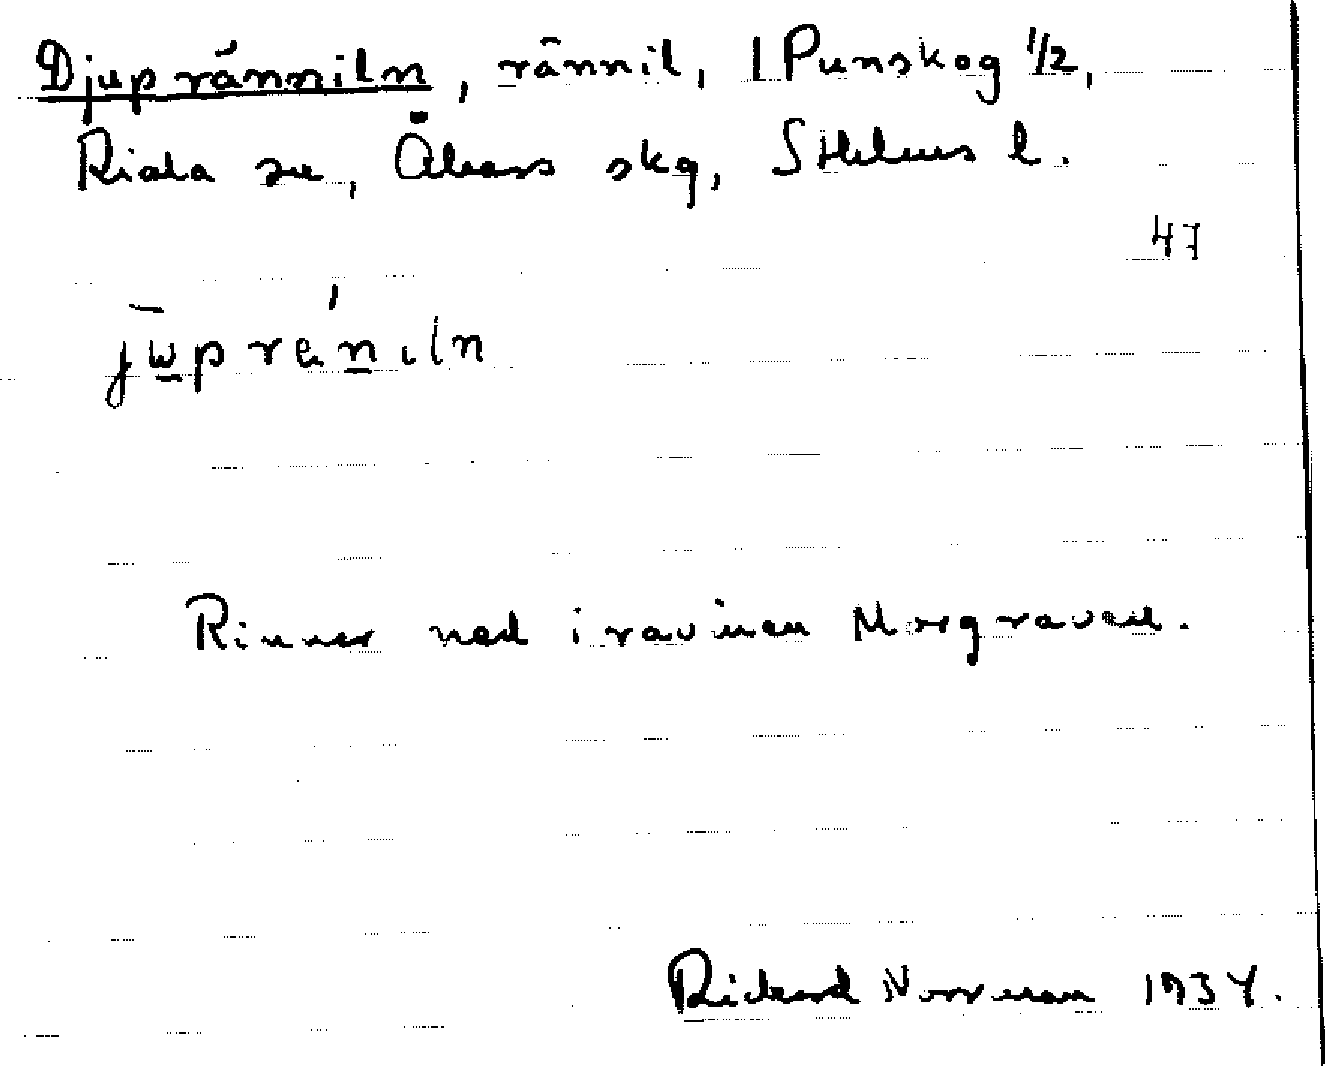 Djupränniln, rännil, 1 Punskog 1/2,
Riala sn, Åkers skg, Sthlms l.
47
Rinner ned i ravinen Morgraven.
Rickard Norrman 1934.